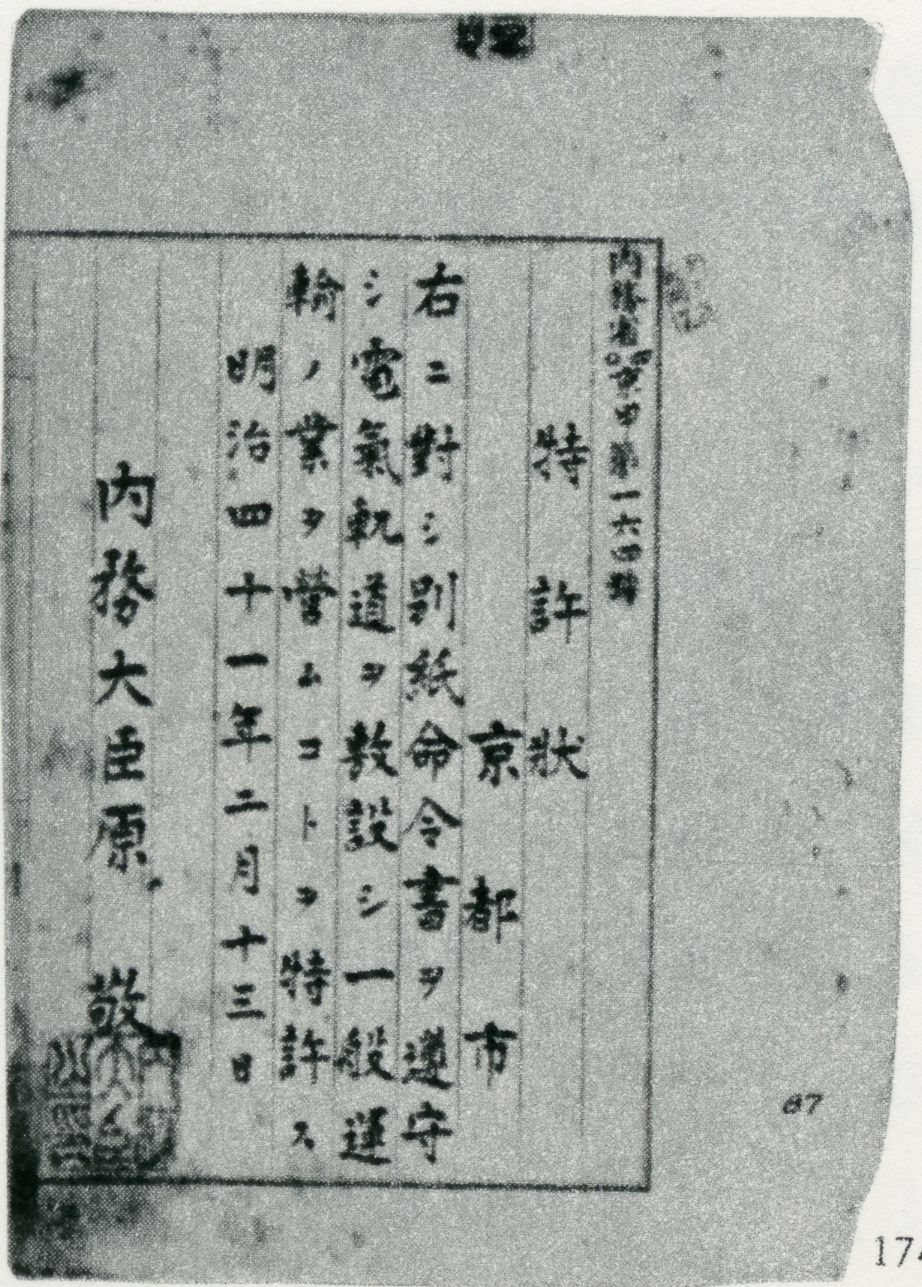 特許狀
京都市
右ニ對シ別紙命令書ヲ遵守
シ電氣軌道ヲ敷設シ一般運
輸ノ業ヲ營ムコトヲ特許ス
明治四十一年二月十三日
内務大臣原 敬
67
174